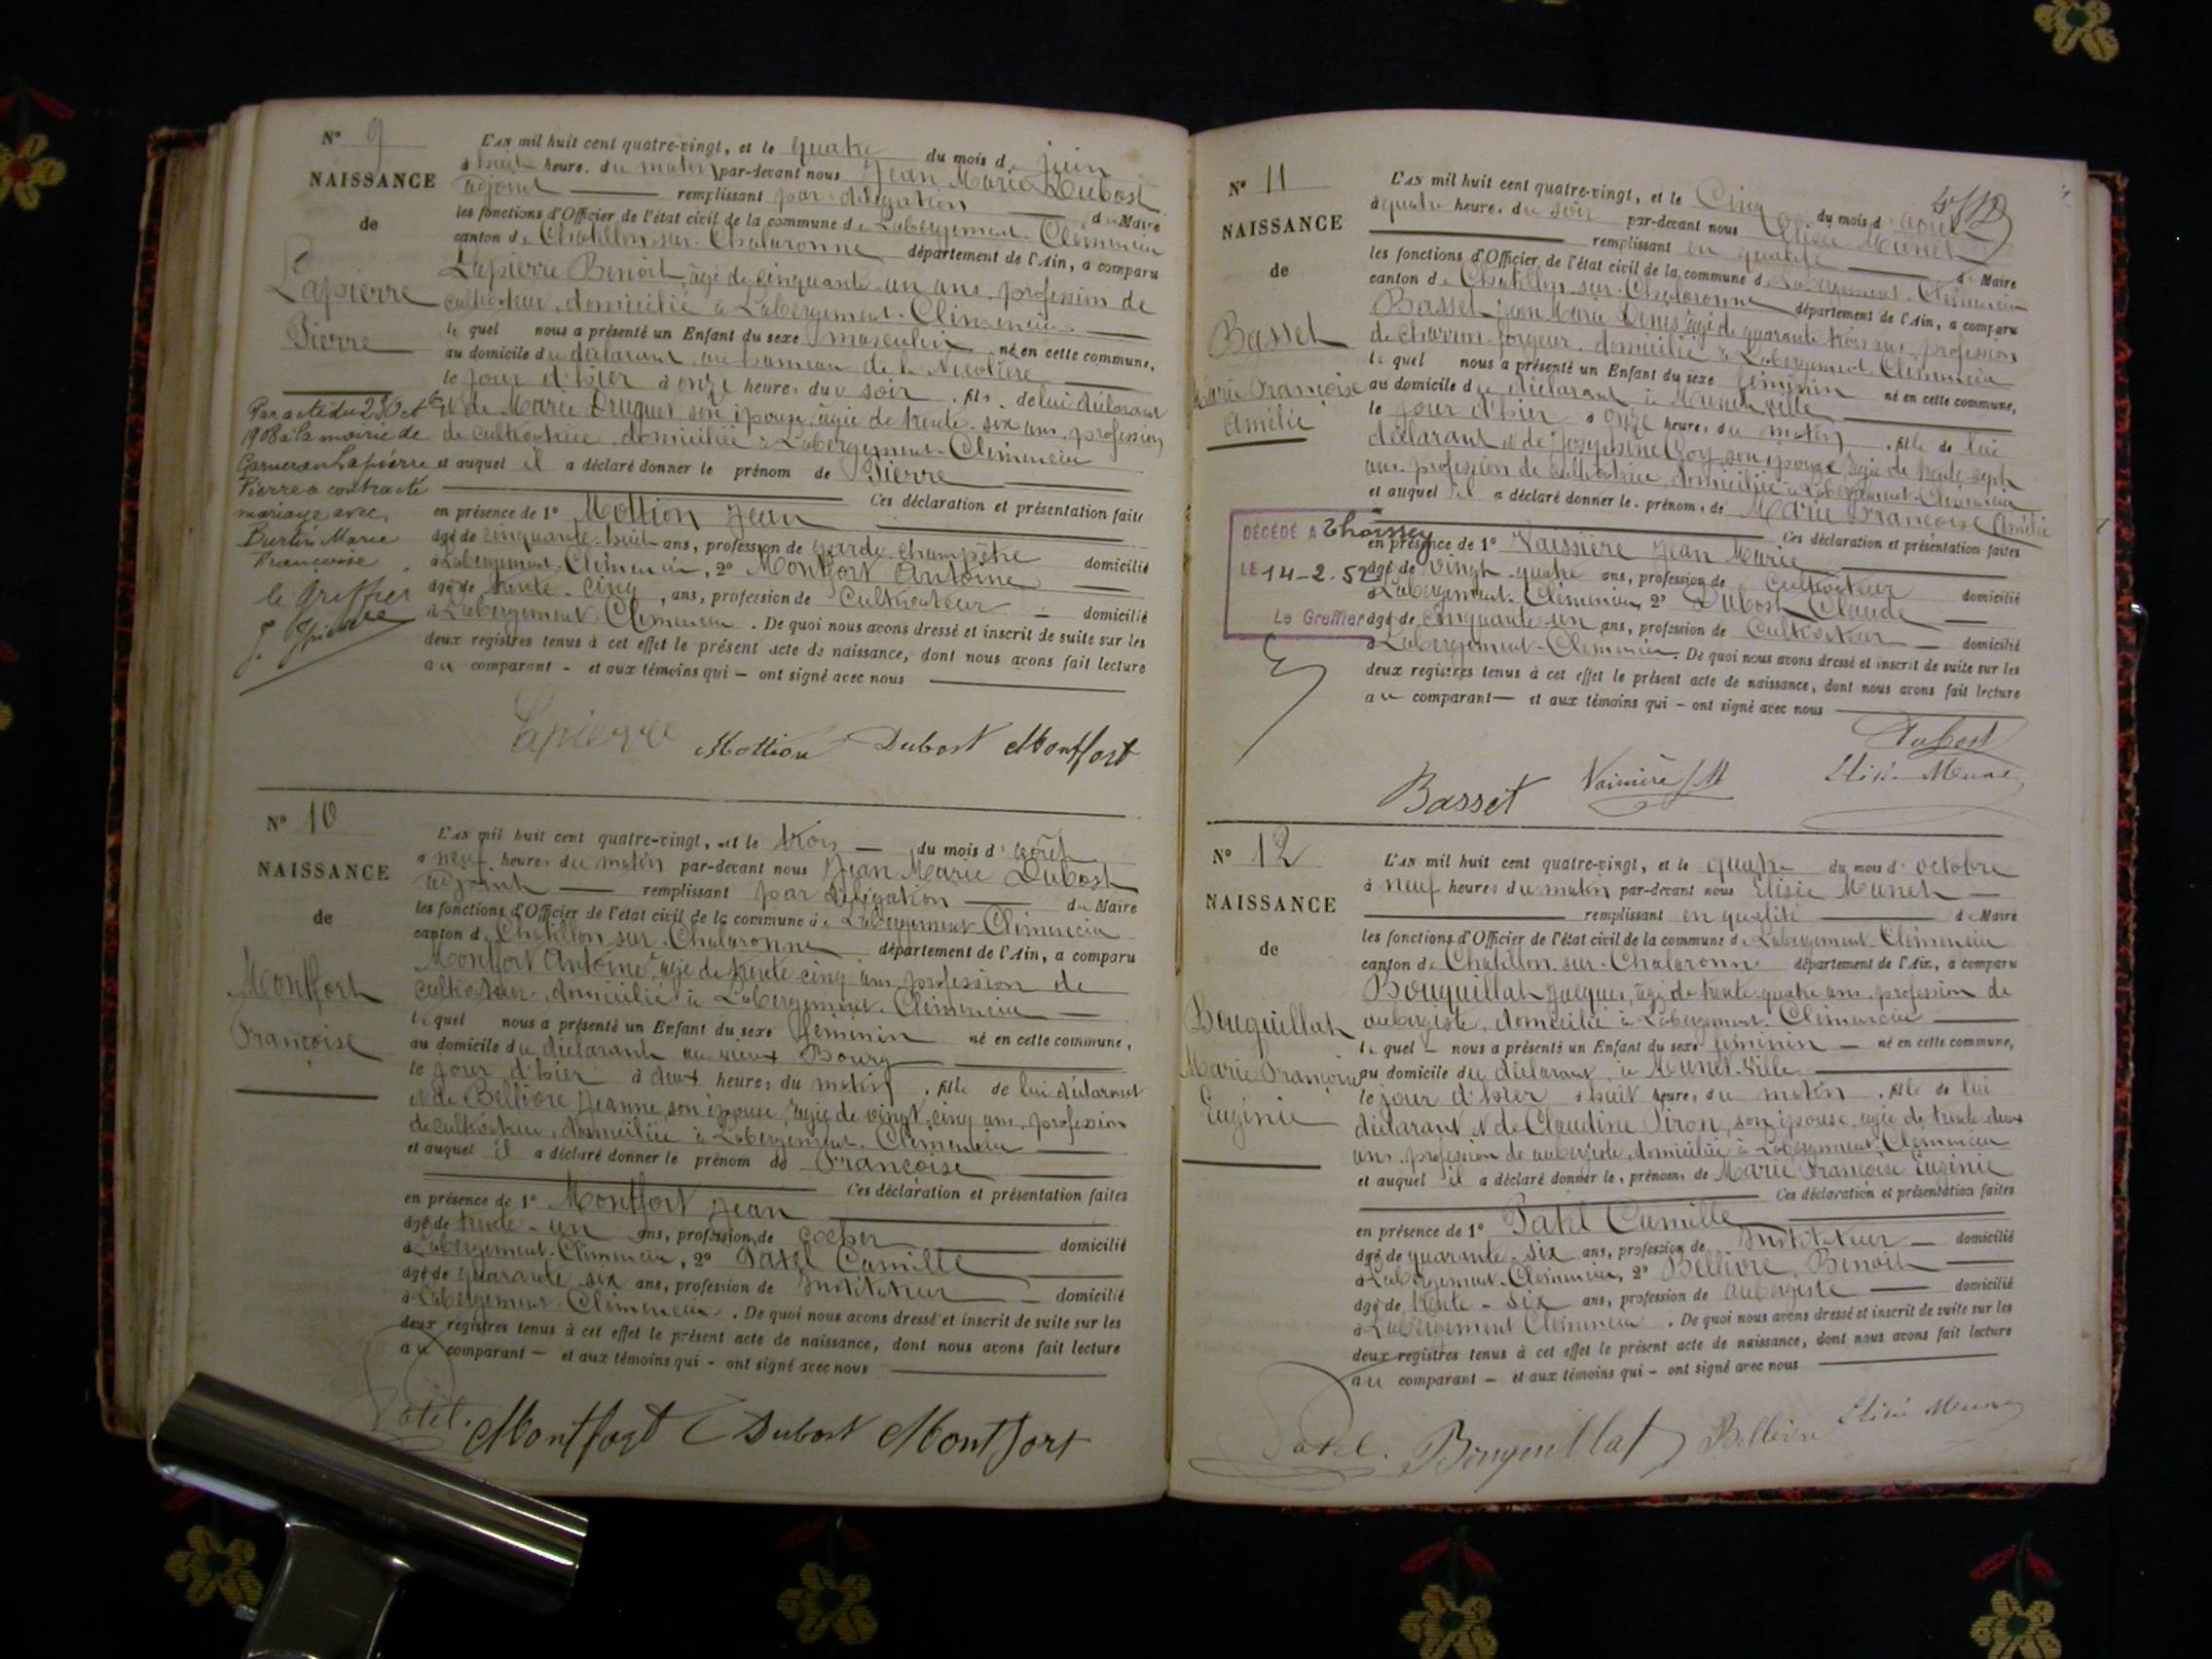 N° 9
NAISSANCE
de
Lapierre
Pierre
L'AN mil huit cent quatre-vingt, et le quatre du mois de juin
à huit heures du matin par-devant nous Jean Marie Dubost
adjoint remplissant par délégation du Maire
les fonctions d'Officier de l'état civil de la commune de Labergement-Clémencia
canton de Chatillon-sur-Chalaronne département de l'Ain, a comparu
Lapierre Benoit, âgé de cinquante-un ans, profession de
cultivateur, domicilié à Labergement-Clémencia
le quel nous a présenté un Enfant du sexe masculin né en cette commune,
au domicile du déclarant, au hameau de la
le jour d'hier à onze heures du soir, fils de lui déclarant
et de Marie Druguet son épouse, âgée de trente-six ans, profession
de cultivatrice, domiciliée à Labergement-Clémencia
et auquel il a déclaré donner le prénom de Pierre
Ces déclaration et présentation faites
en présence de 1° Mottion Jean
âgé de cinquante-huit ans, profession de garde-champêtre domicilié
à Labergement-Clémencia, 2° Montfort Antoine
âgé de trente-cinq, ans, profession de Cultivateur domicilié
à Labergement-Clémencia. De quoi nous avons dressé et inscrit de suite sur les
deux registres tenus à cet effet le présent acte de naissance, dont nous avons fait lecture
au comparant - et aux témoins qui - ont signé avec nous
Par acte du 23 Oct
1908 à la mairie de
Garnerans Lapierre
Pierre a contracté
mariage avec
Burtin Marie
Françoise
le Greffier
Lapierre Mottion Dubost Montfort
N° 10
NAISSANCE
de
Montfort
Françoise
L'AN mil huit cent quatre-vingt, et le trois du mois d'août
à neuf heures du matin par-devant nous Jean Marie Dubost
adjoint remplissant par délégation du Maire
les fonctions d'Officier de l'état civil de la commune de Labergement-Clémencia
canton de Chatillon-sur-Chalaronne département de l'Ain, a comparu
Montfort Antoine, âgé de trente-cinq ans, profession de
cultivateur, domicilié à Labergement-Clémencia
le quel nous a présenté un Enfant du sexe féminin né en cette commune,
au domicile du déclarant au vieux Bourg
le jour d'hier à deux heures du matin, fille de lui déclarant
et de Bellivre Jeanne son épouse âgée de vingt-cinq ans, profession
de cultivatrice, domiciliée à Labergement-Clémencia
et auquel il a déclaré donner le prénom de Françoise
Ces déclaration et présentation faites
en présence de 1° Montfort Jean
âgé de trente-un ans, profession de cocher domicilié
à Labergement-Clémencia, 2° Patel Camille
âgé de quarante-six ans, profession de Instituteur domicilié
à Labergement-Clémencia. De quoi nous avons dressé et inscrit de suite sur les
deux registres tenus à cet effet le présent acte de naissance, dont nous avons fait lecture
au comparant - et aux témoins qui - ont signé avec nous
Patel. Montfort Dubost Montfort
N° 11
NAISSANCE
de
Basset
Marie Françoise
Amélie
L'AN mil huit cent quatre-vingt, et le Cinq du mois d'août
à quatre heures du soir par-devant nous Elisée Munet
remplissant en qualité de Maire
les fonctions d'Officier de l'état civil de la commune de Labergement-Clémencia
canton de Chatillon-sur-Chalaronne département de l'Ain, a comparu
Basset Jean Marie Denis âgé de quarante trois ans, profession
de charron-forgeur, domicilié à Labergement-Clémencia
le quel nous a présenté un Enfant du sexe féminin né en cette commune,
au domicile du déclarant à Munet-ville
le jour d'hier à onze heures du matin, fille de lui
déclarant et de Josephine Goy son épouse âgée de trente-sept
ans, profession de cultivatrice, domiciliée à Labergement-Clémencia
et auquel il a déclaré donner les prénoms de Marie Françoise Amélie
Ces déclaration et présentation faites
en présence de 1° Vaissière Jean Marie
âgé de vingt-quatre ans, profession de Cultivateur domicilié
à Labergement-Clémencia, 2° Dubost Claude
âgé de cinquante-un ans, profession de Cultivateur domicilié
à Labergement-Clémencia. De quoi nous avons dressé et inscrit de suite sur les
deux registres tenus à cet effet le présent acte de naissance, dont nous avons fait lecture
au comparant - et aux témoins qui - ont signé avec nous
DÉCÉDÉ A Thoissey
LE 14-2-52
Le Greffier
Dubost
Basset Vaissière JM Elisée Munet
N° 12
NAISSANCE
de
Bouquillat
Marie Françoise
Eugénie
L'AN mil huit cent quatre-vingt, et le quatre du mois d'octobre
à neuf heures du matin par-devant nous Elisée Munet
remplissant en qualité de Maire
les fonctions d'Officier de l'état civil de la commune de Labergement-Clémencia
canton de Chatillon-sur-Chalaronne département de l'Ain, a comparu
Bouquillat Jacques, âgé de trente-quatre ans, profession de
aubergiste, domicilié à Labergement-Clémencia
le quel - nous a présenté un Enfant du sexe féminin - né en cette commune,
au domicile du déclarant, à Munet-Ville
le jour d'hier à huit heures du matin, fille de lui
déclarant et de Claudine Piron, son épouse, âgée de trente-deux
ans, profession de aubergiste, domiciliée à Labergement-Clémencia
et auquel il a déclaré donner les prénoms de Marie Françoise Eugénie
Ces déclaration et présentation faites
en présence de 1° Patel Camille
âgé de quarante-six ans, profession de Instituteur domicilié
à Labergement-Clémencia, 2° Bellivre Benoit
âgé de trente-six ans, profession de aubergiste domicilié
à Labergement-Clémencia. De quoi nous avons dressé et inscrit de suite sur les
deux registres tenus à cet effet le présent acte de naissance, dont nous avons fait lecture
au comparant - et aux témoins qui - ont signé avec nous
Patel. Bouquillat Bellivre Elisée Munet